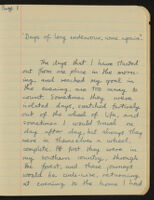 Page 1
'Days of long endeavour, come again'.
The days that I have started
out from one place in the morn-
ing, and reached my goal in
the evening, are too many to
count. Sometimes they were
isolated days, snatched furtively
out of the wheel of life; and
sometimes I would travel on
day after day, but always they
were in themselves a wheel,
complete. At first they were in
my southern country, through
the forest, and these journeys
would be circle-wise, returning
at evening to the home I had